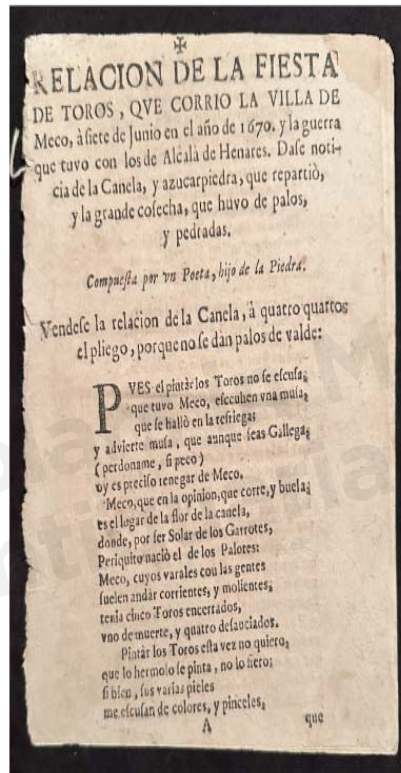 ✠
RELACION DE LA FIESTA
DE TOROS, QVE CORRIO LA VILLA DE
Meco, à siete de Junio en el año de 1670. y la guerra
que tuvo con los de Alcalà de Henares. Dase noti-
cia de la Canela, y azucarpiedra, que repartiò,
y la grande cosecha, que huvo de palos,
y pedradas.
Compuesta por vn Poeta, hijo de la Piedra.
Vendese la relacion de la Canela, à quatro quartos
el pliego, porque no se dàn palos de valde:
PVES el pintàr los Toros no se escusa,
que tuvo Meco, escuchen vna musa,
que se hallò en la refriegas
y advierte musa, que aunque seas Gallega,
(perdoname, si peco)
oy es preciso renegar de Meco.
Meco, que en la opinion, que corre, y buela,
es el lugar de la flor de la canela,
donde, por ser Solar de los Garrotes,
Periquito naciò el de los Palotes:
Meco, cuyos varales con las gentes
suelen andàr corrientes, y molientes,
tenia cinco Toros encerrados,
vno de muerte, y quatro desauciados.
Pintàr los Toros esta vez no quiero,
que lo hermoso se pinta, no lo fiero;
si bien, sus varias pieles
me escusan de colores, y pinceles,
A
que